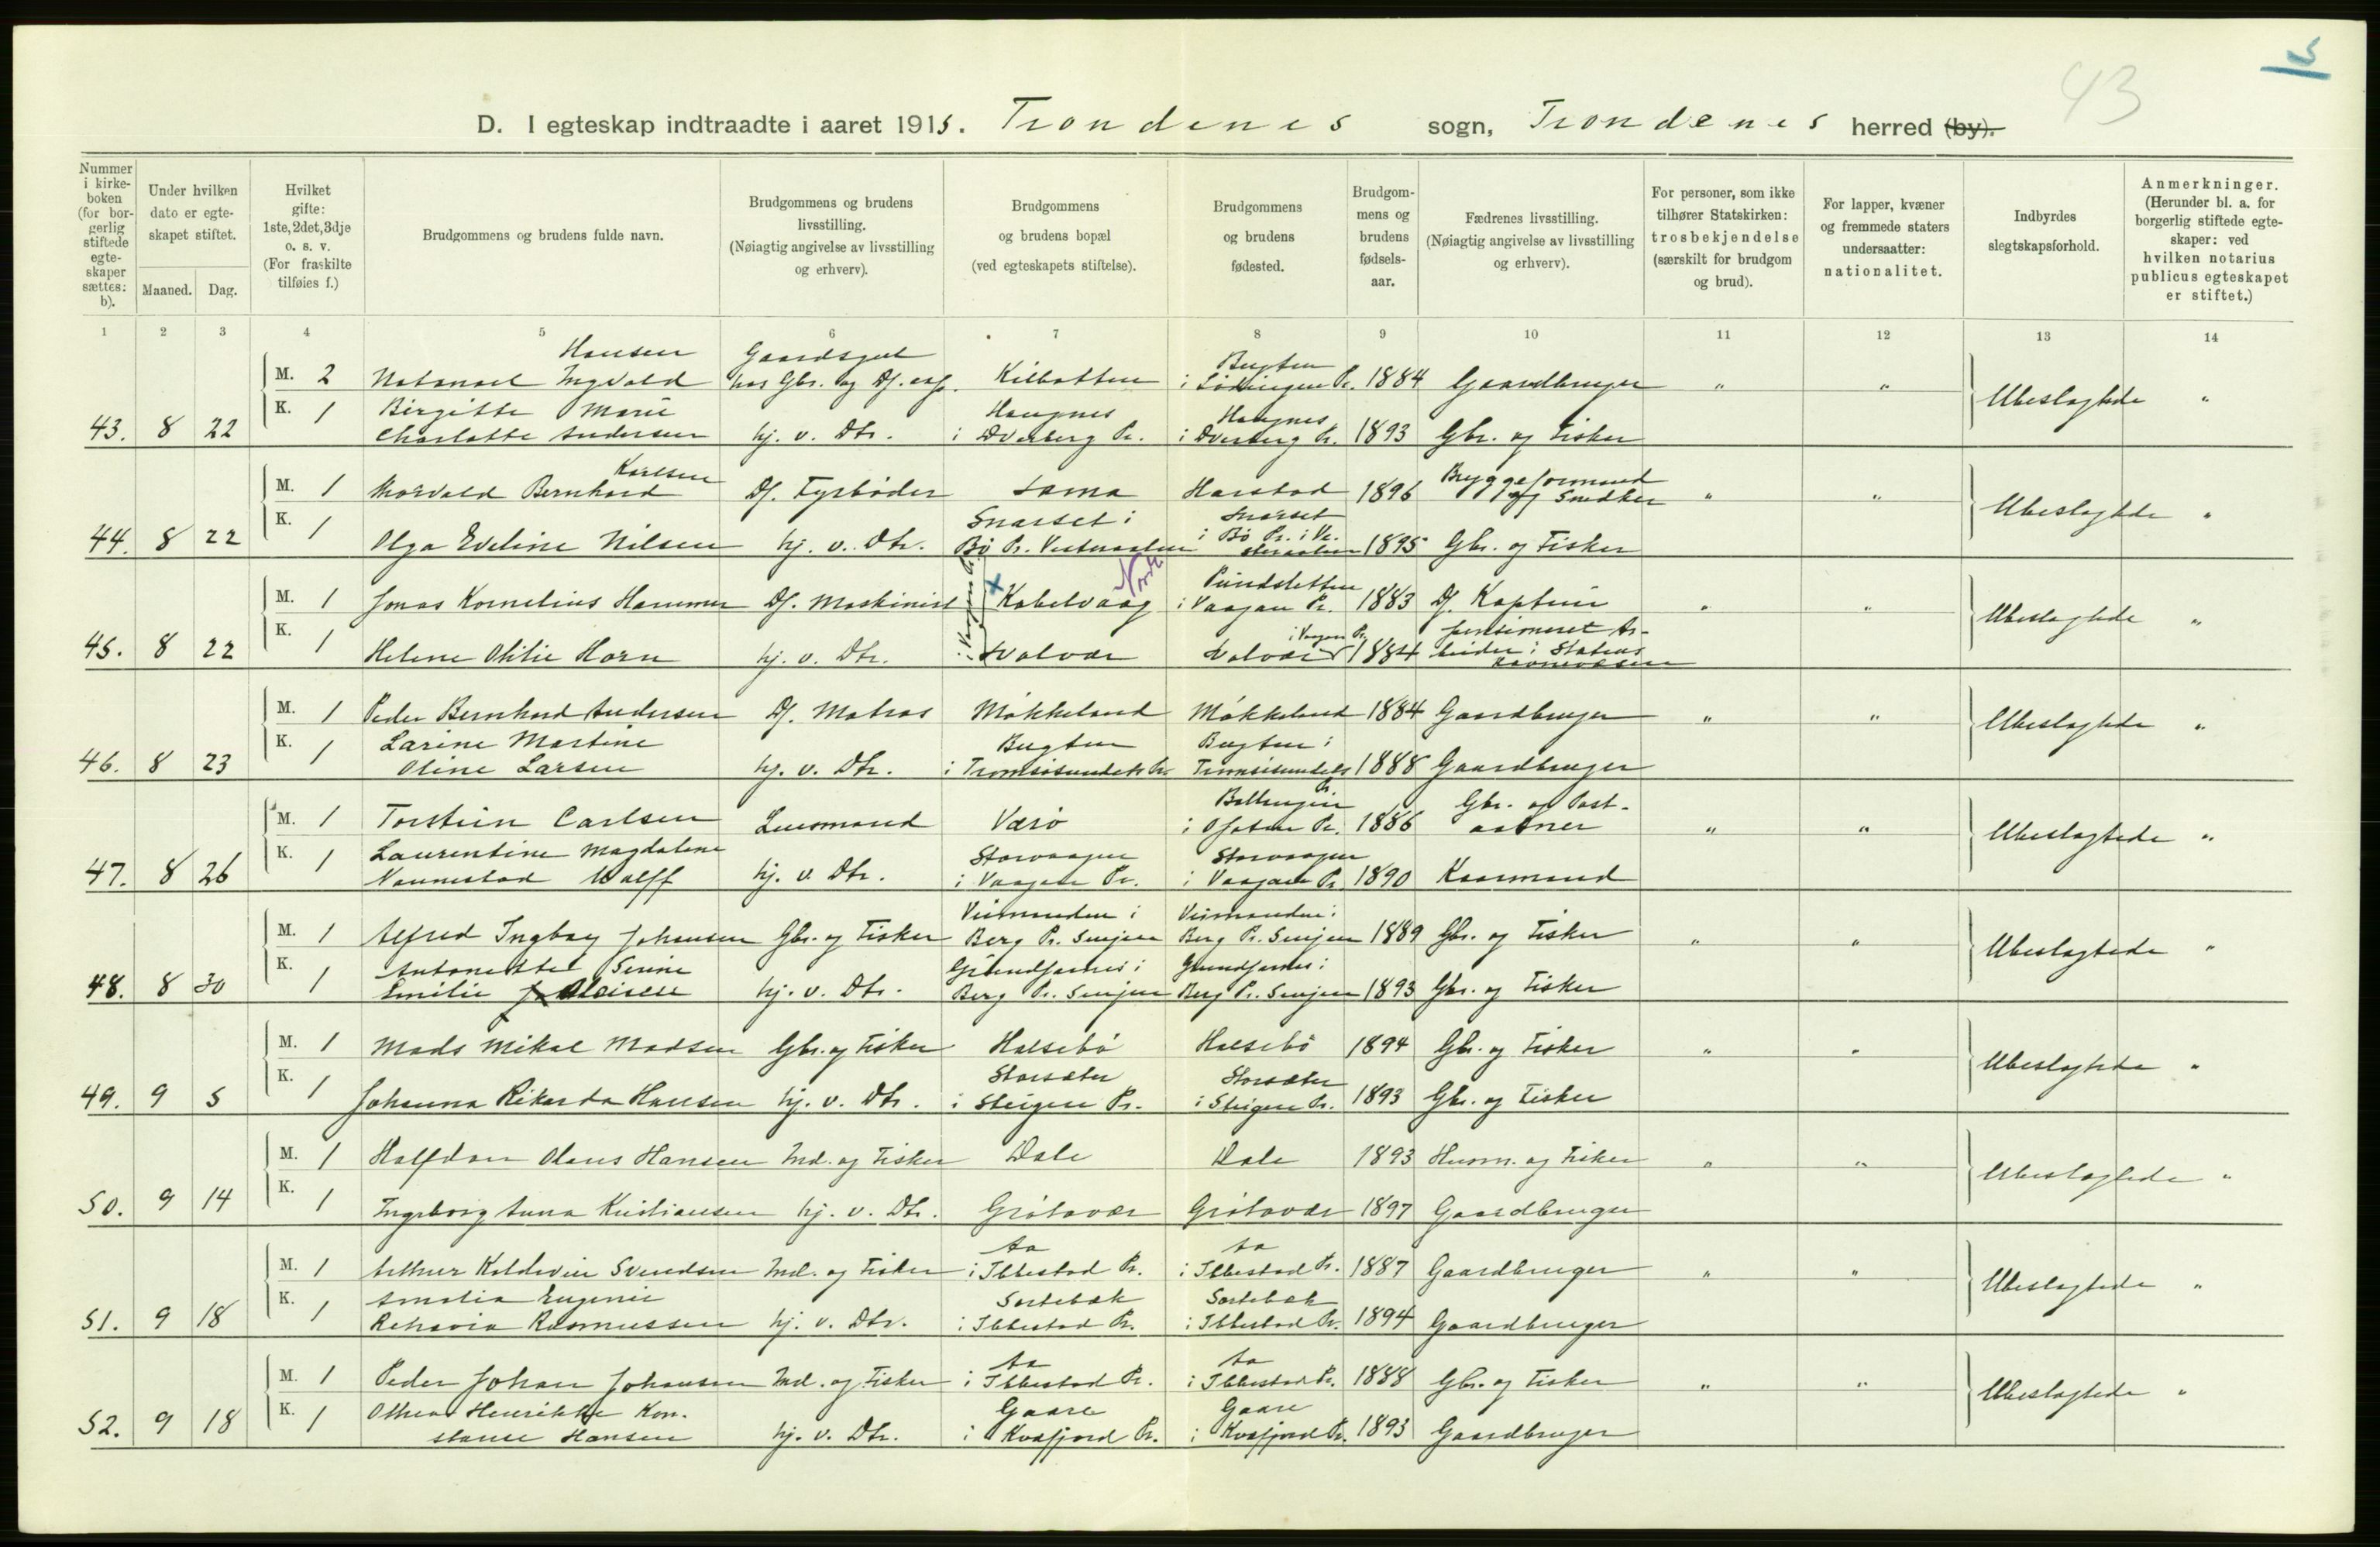 43
D. I egteskap indtraadte i aaret 1915. Trondenes sogn, Trondenes herred (by).
Nummer i kirke-boken (for bor-gerlig stiftede egte-skaper sættes: b).
Under hvilken dato er egte-skapet stiftet.
Maaned. Dag.
Hvilket gifte: 1ste, 2det, 3dje o. s. v. (For fraskilte tilføies f.)
Brudgommens og brudens fulde navn.
Brudgommens og brudens livsstilling. (Nøiagtig angivelse av livsstilling og erhverv).
Brudgommens og brudens bopæl (ved egteskapets stiftelse).
Brudgommens og brudens fødested.
Brudgom-mens og brudens fødsels-aar.
Fædrenes livsstilling. (Nøiagtig angivelse av livsstilling og erhverv).
For personer, som ikke tilhører Statskirken: trosbekjendelse (særskilt for brudgom og brud).
For lapper, kvæner og fremmede staters undersaatter: nationalitet.
Indbyrdes slegtskapsforhold.
Anmerkninger. (Herunder bl. a. for borgerlig stiftede egte-skaper: ved hvilken notarius publicus egteskapet er stiftet.)
1 2 3 4 5 6 7 8 9 10 11 12 13 14
M. 2 Natanael Ingvald Hansen Gaardsgut hos Gbr. og Kilbotten Bugten i Lødingen Pr. 1884 Gaardbruger " " Ubeslegtede "
43. 8 22 K. 1 Birgitte Marie Charlotte Andersen hj. v. Dtr. Haugnes i Dverberg Pr. Haugnes i Dverberg Pr. 1893 Gbr. og Fisker
M. 1 Thorvald Bernhard Karlsen Df. Fyrbøder Sama Harstad 1896 Bryggeformand og Snedker " " Ubeslegtede "
44. 8 22 K. 1 Olga Eveline Nilsen hj. v. Dtr. Snarset i Bø Pr. Vesteraalen Snarset i Bø Pr. i Ve-steraalen 1895 Gbr. og Fisker
M. 1 Jonas Kornelius Hammer Df. Maskinist Kabelvaag Nordl. Pundsletten i Vaagan Pr. 1883 Df. Kaptein " " Ubeslegtede "
45. 8 22 K. 1 Helene Otilie Horn hj. v. Dtr. Svolvær i Vaagan Pr. Svolvær i Vaagan Pr. 1884 pensioneret Ar-beider i Statens Havnevæsen
M. 1 Peder Bernhard Andersen Df. Matros Møkkeland Møkkeland 1884 Gaardbruger " " Ubeslegtede "
46. 8 23 K. 1 Larine Martine Oline Larsen hj. v. Dtr. Bugten i Tromsøsundets Pr. Bugten i Tromsøsundets Pr. 1888 Gaardbruger
M. 1 Torstein Carlsen Lensmand Værø Ballangen i Ofoten Pr. 1886 Gbr. og Post-aabner " " Ubeslegtede "
47. 8 26 K. 1 Laurentine Magdalene Wolff hj. v. Dtr. Storvaagen i Vaagan Pr. Storvaagen i Vaagan Pr. 1890 Kaarmand
M. 1 Alfred Ingbøy Johansen Gbr. og Fisker i Berg Pr. Senjen i Berg Pr. Senjen 1889 Gbr. og Fisker " " Ubeslegtede "
48. 8 30 K. 1 Antonette Serine Emilie Aleisen hj. v. Dtr. Grundfarnes i Berg Pr. Senjen Grundfarnes i Berg Pr. Senjen 1893 Gbr. og Fisker
M. 1 Mads Mikal Madsen Gbr. og Fisker Halsebø Halsebø 1894 Gbr. og Fisker " " Ubeslegtede "
49. 9 5 K. 1 Johanna Rikarda Hansen hj. v. Dtr. Storsæter i Steigen Pr. Storsæter i Steigen Pr. 1893 Gbr. og Fisker
M. 1 Halfdan Olaus Hansen Ind. og Fisker Dale Dale 1893 Husm. og Fisker " " Ubeslegtede "
50. 9 14 K. 1 Ingeborg Anna Kristiansen hj. v. Dtr. Grøtavær Grøtavær 1897 Gaardbruger
M. 1 Arthur Koldevin Svendsen Ind. og Fisker Aa i Ibbestad Pr. Aa i Ibbestad Pr. 1887 Gaardbruger " " Ubeslegtede "
51. 9 18 K. 1 Amalia Eugenie Rasmussen hj. v. Dtr. Sortebæk i Ibbestad Pr. Sortebæk i Ibbestad Pr. 1894 Gaardbruger
M. 1 Peder Johan Johansen Ind. og Fisker Aa i Ibbestad Pr. Aa i Ibbestad Pr. 1888 Gbr. og Fisker " " Ubeslegtede "
52. 9 18 K. 1 Henrikke Kon-stanse Hansen hj. v. Dtr. Gaare i Kvæfjord Pr. Gaare i Kvæfjord Pr. 1893 Gaardbruger